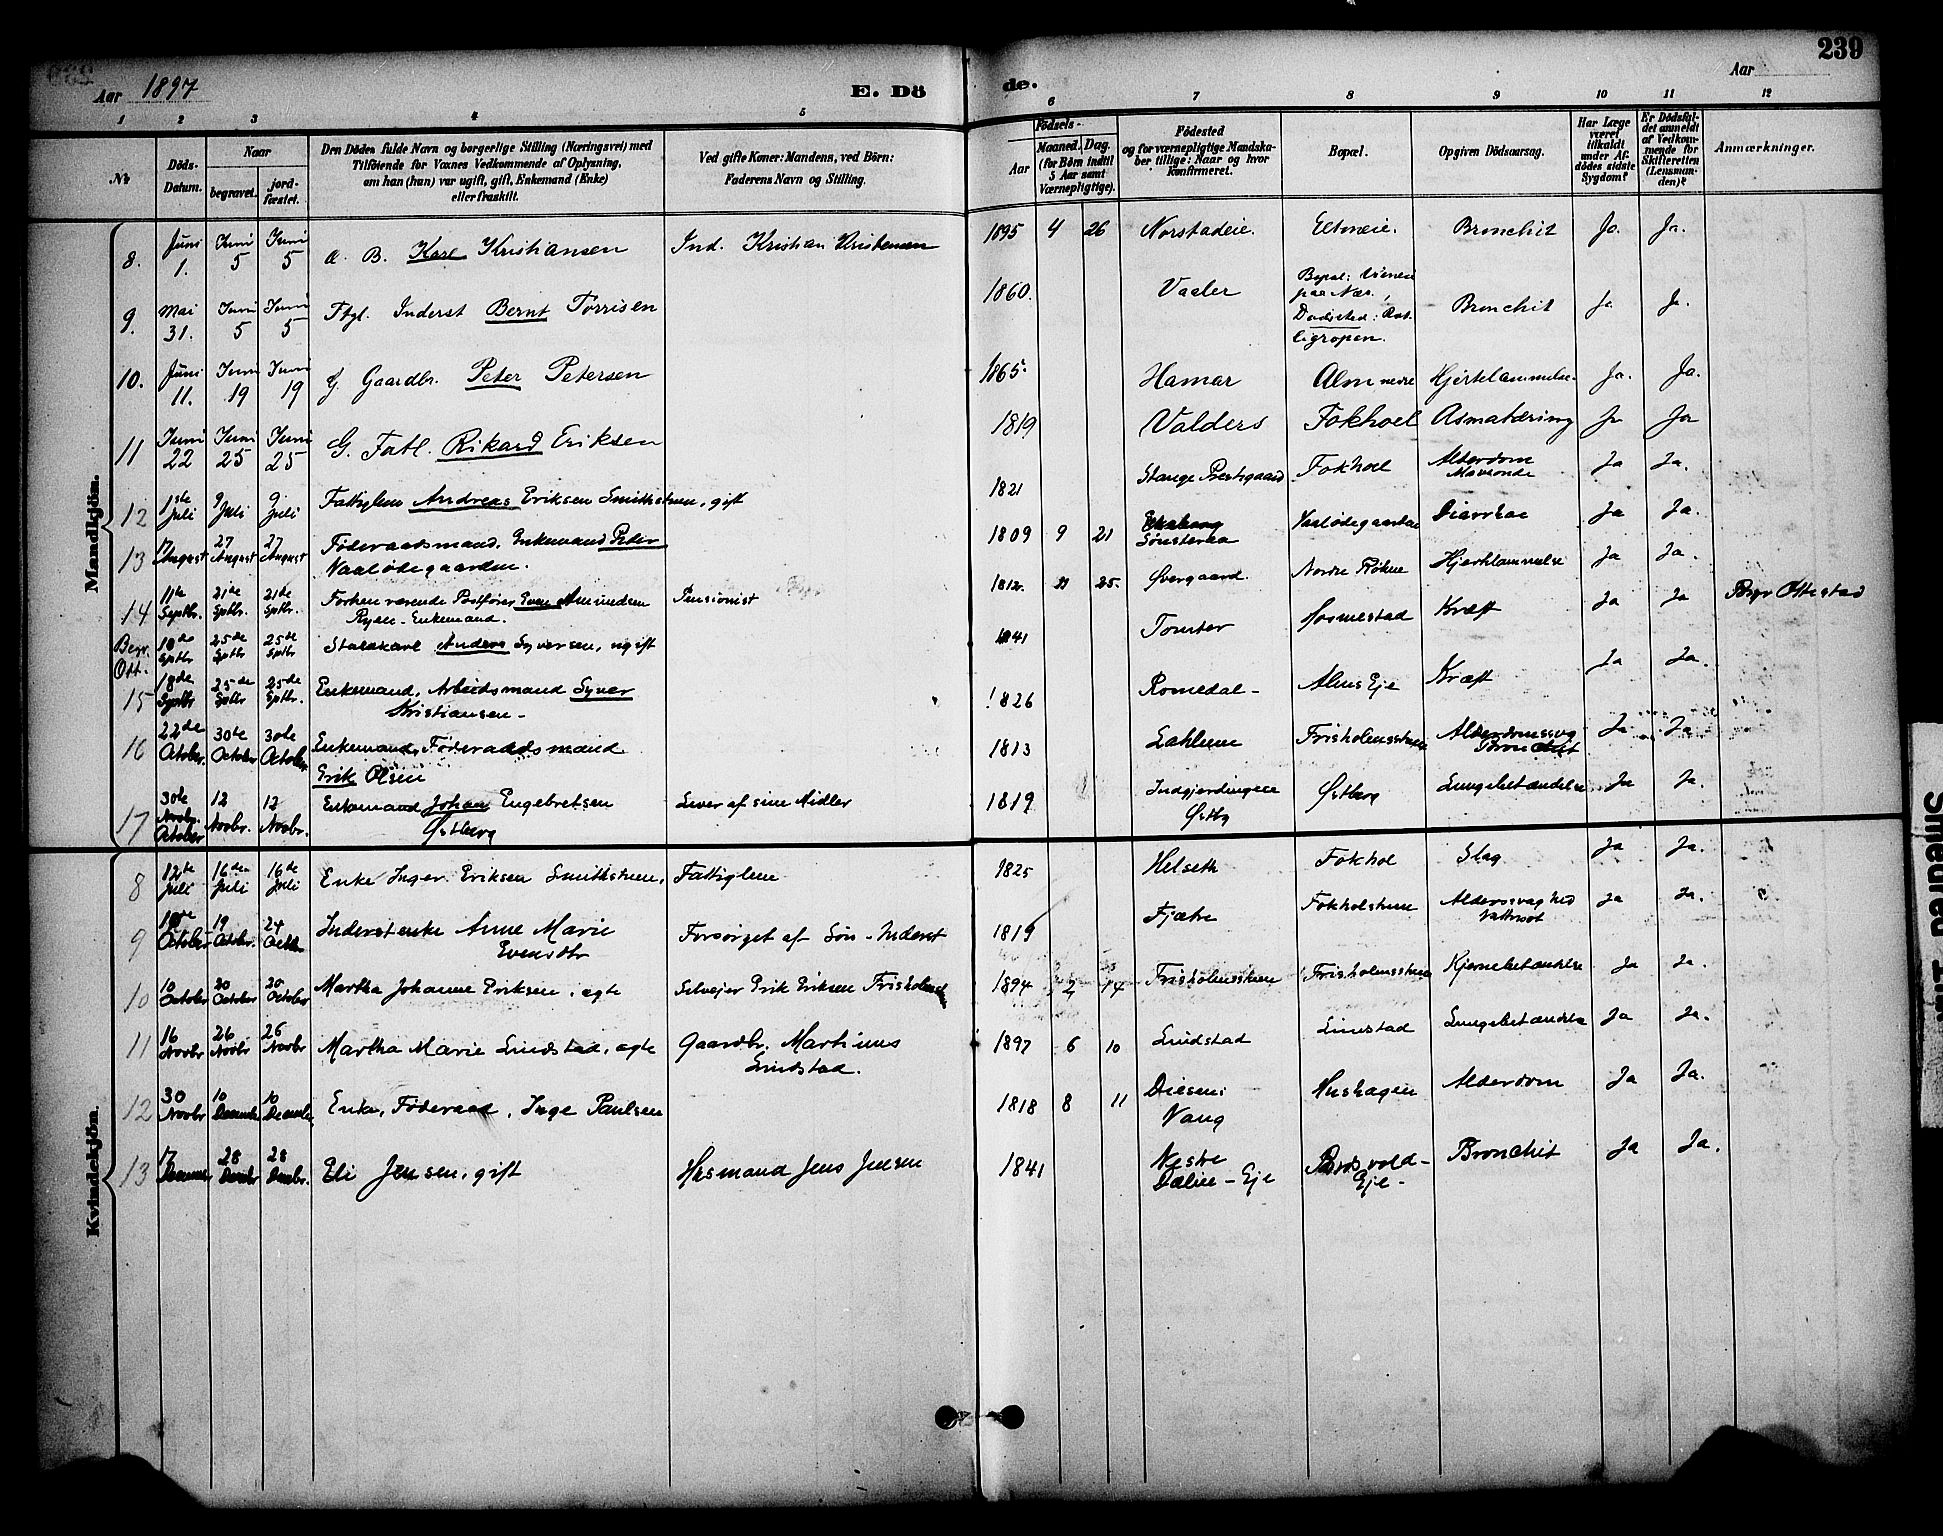 239
Aar 1897 E. Dö de. Aar
1 2 3 4 5 6 7 8 9 10 11 12
№
Döds-Datum.
Naar
begravet. jord-fæstet.
Den Dödes fulde Navn og borgerlige Stilling (Næringsvei) med
Tilföiende for Voxnes Vedkommende af Oplysning,
om han (hun) var ugift, gift, Enkemand (Enke)
eller fraskilt.
Ved gifte Koner: Mandens, ved Börn:
Faderens Navn og Stilling.
Födsels-
Aar
Maaned. Dag.
(for Börn indtil
5 Aar samt
Værnepligtige).
Födested
og for værnepligtige Mandska-
ber tillige: Naar og hvor
konfirmeret.
Bopæl.
Opgiven Dödsaarsag.
Har Læge
været
tilkaldt
under Af-
dödes sidste
Sygdom?
Er Dödsfal-
det anmeldt
af Vedkom-
mende for
Skifteretten
(Lensman-
den)?
Anmærkninger.
Mandkjön.
8. Juni 1. Juni 5 Juni 5 A. B. Karl Kristiansen Ind. Kristian Kristensen 1895 4 26 Norstadeie. Bronchit Ja. Ja.
9. Mai 31. Juni 5 Juni 5 Ftgl. Inderst Bernt Torrisen 1860. Vaaler Bopæl: paa Næs, Dødssted: ligropen. Bronchit Ja Ja.
10. Juni 11. Juni 19 Juni 19 G. Gaardbr. Peter Petersen 1865. Hamar Alm nedre Hjertelammelse. Ja. Ja.
11 Juni 22 Juni 25 Juni 25 G. Fatl. Rikard Eriksen 1819 Valders Fokhoel Ja Ja
12 1ste Juli 9 Juli 9 Juli Fattiglem Andreas Eriksen Smithstuen, gift 1821 Stange Prestgaard Fokhoel Alderdom Ja Ja.
13 17 August 27 August 27 August Føderaadsmand. Enkemand Peder
Vaalødegaarden. 1809 9 21 Sønsteraa Diarrhae Ja Ja.
14 11te Septbr. 21de Septbr. 21de Septbr. Forhenværende Postfører Even Amundsen
Ryen. Enkemand. Pensionist 1812. 11 25. Øvergaard. Nordre Røkne Hjertelammelse Ja Ja.
Begr. Ott. 18de Septbr 25de Septbr 25de Septbr. Staldkarl Anders Syversen, ugift 1841 Tomter Hosmestad Kræft Ja Ja Begr Ottestad
15 18de Septbr 25de Septbr 25de Septbr. Enkemand, Arbeidsmand Syver
Kristiansen - 1826 Romedal - Alms Eje Kræft Ja Ja.
16 22de October. 30te October 30te October Enkemand, Føderaadsmand
Erik Olsen 1813 Frisholmsstuen Alderdomssvag
Bronchit Ja Ja.
17 30te October 12 Novbr. 12 Novbr. Enkemand Johan Engebretsen
Østberg Lever af sine Midler 1819 Østby Østberg Lungebetændelse Ja Ja.
Kvindekjön.
8 12te Juli 16de Juli 16de Juli Enke Inger Eriksen Smithstuen, Fattiglem 1825 Helseth Fokhol Slag Ja Ja.
9 10de October 19 October. 24 Octbr. Inderstenke Anne Marie
Evensdtr Forsørget af Søn - Inderst 1819 Fjætre Fokholstuen Alderssvaghed
Vattersot Ja Ja.
10 10 October 20 October 20 October Martha Johanne Eriksen, ægte Selvejer Erik Eriksen Frisholmst 1894 2 14 Frisholmsstuen Frisholmsstuen Hjernebetændelse Ja Ja.
11 16 Novbr 26 Novbr 26 Novbr Martha Marie Lindstad, ægte Gaardbr. Martinus
Lindstad. 1897 6 10 Lindstad Linstad Lungebetændelse Ja Ja.
12 30 Novbr 10 10 Enke, Føderaad, Inge Paulsen 1818 8 11 Diesen:
Vang Hushagen Alderdom Ja Ja.
13 17 28 28 Eli Jensen, gift Husmand Jens Jensen 1841 Nestre
Dælien - Eje Bodsvold -
Eje - Bronchit Ja Ja.